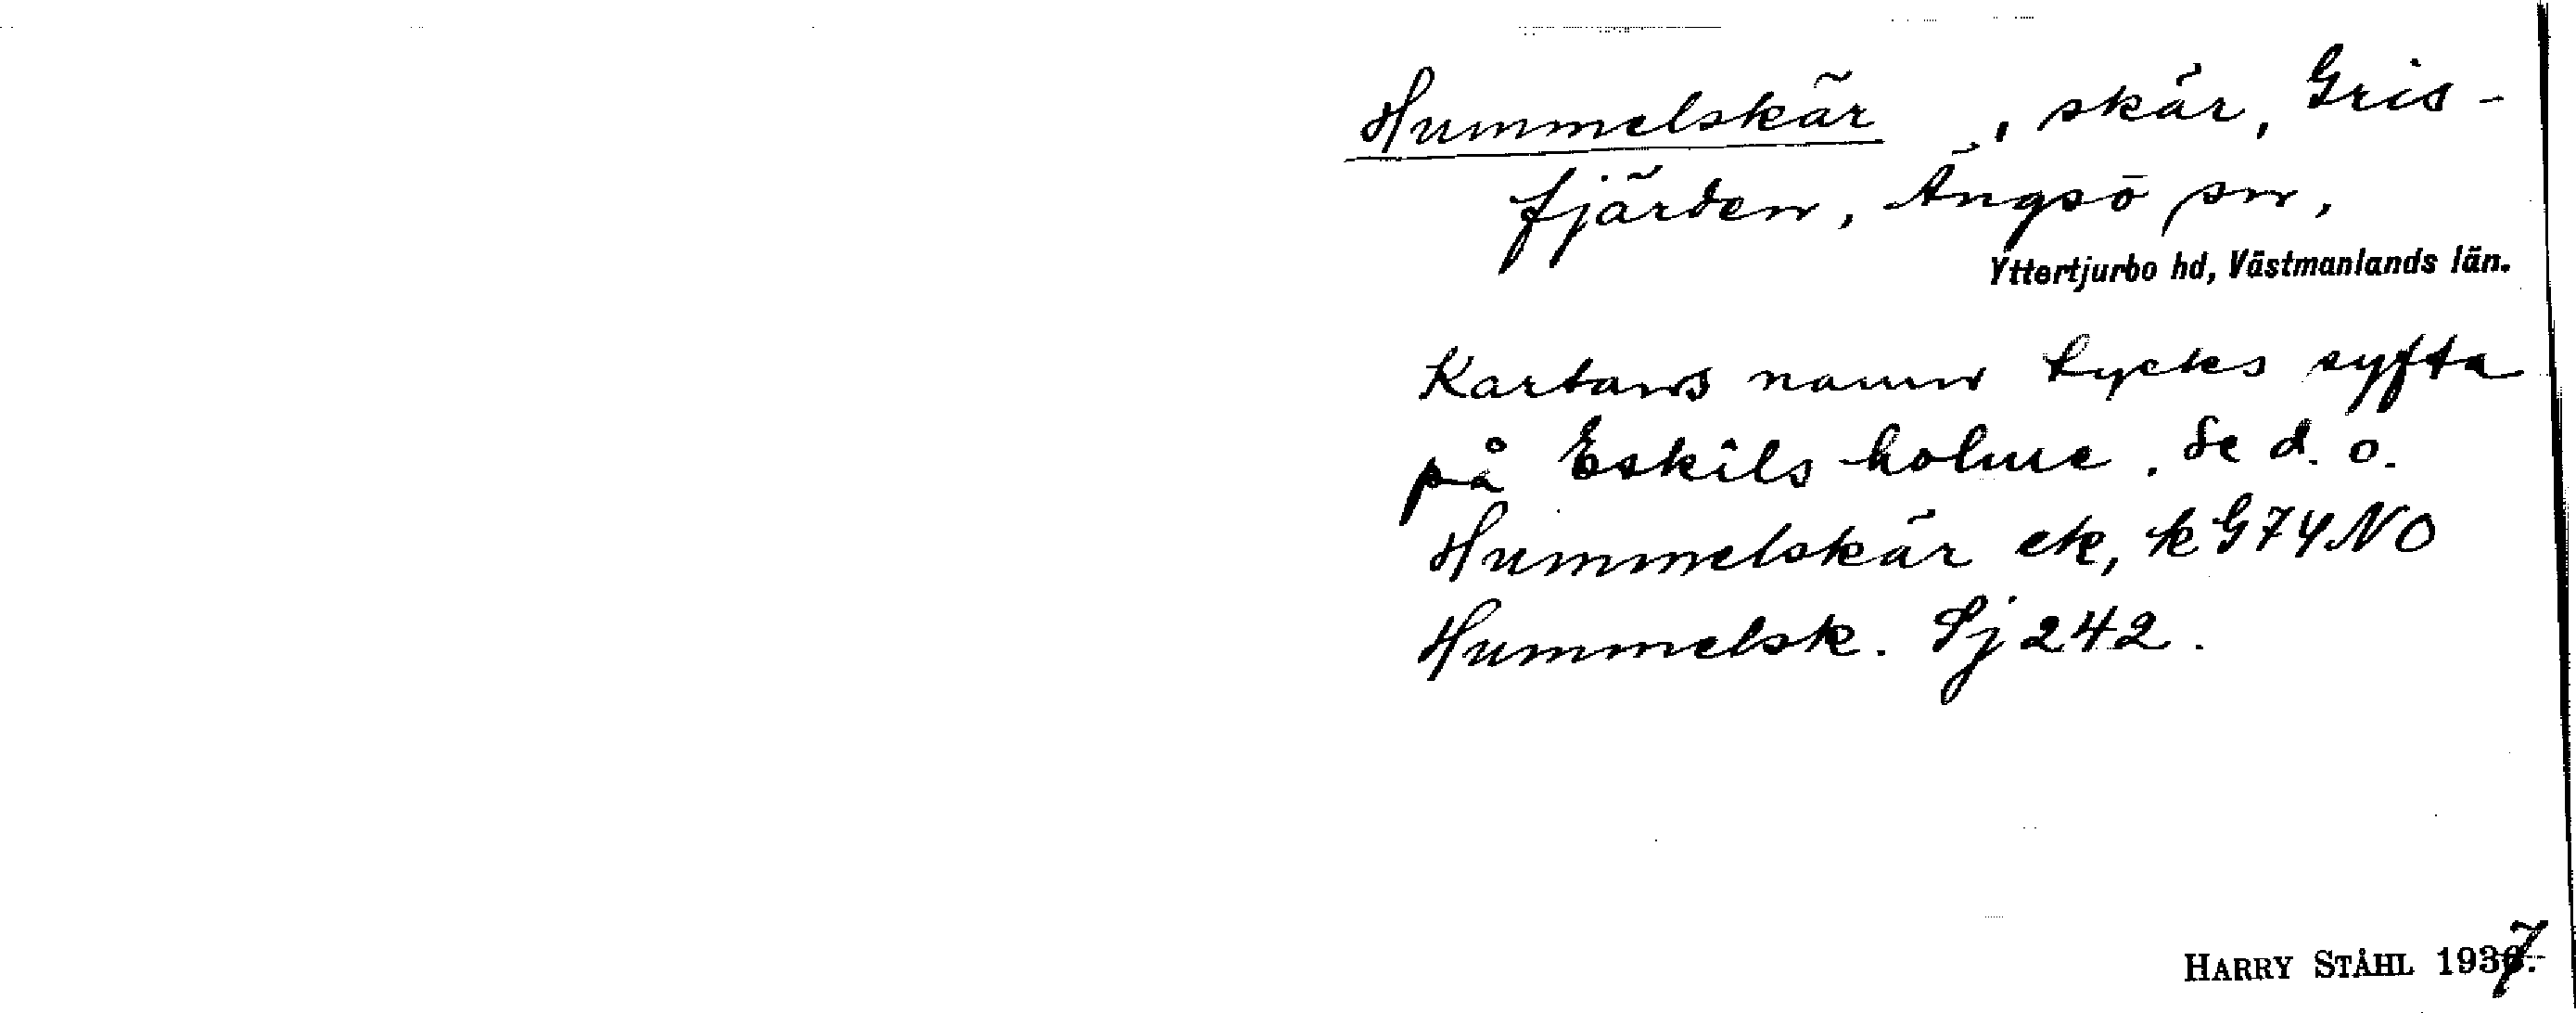 Hummelskär, skär, Gris-
fjärden, Ängsö sn,
Yttertjurbo hd, Västmanlands län.
Kartans namn tycks syfta
på Eskils holme. Se d. o.
Hummelskär ek, k G 74 NO
Hummelsk. Sj 242.
HARRY STÅHL 1937.